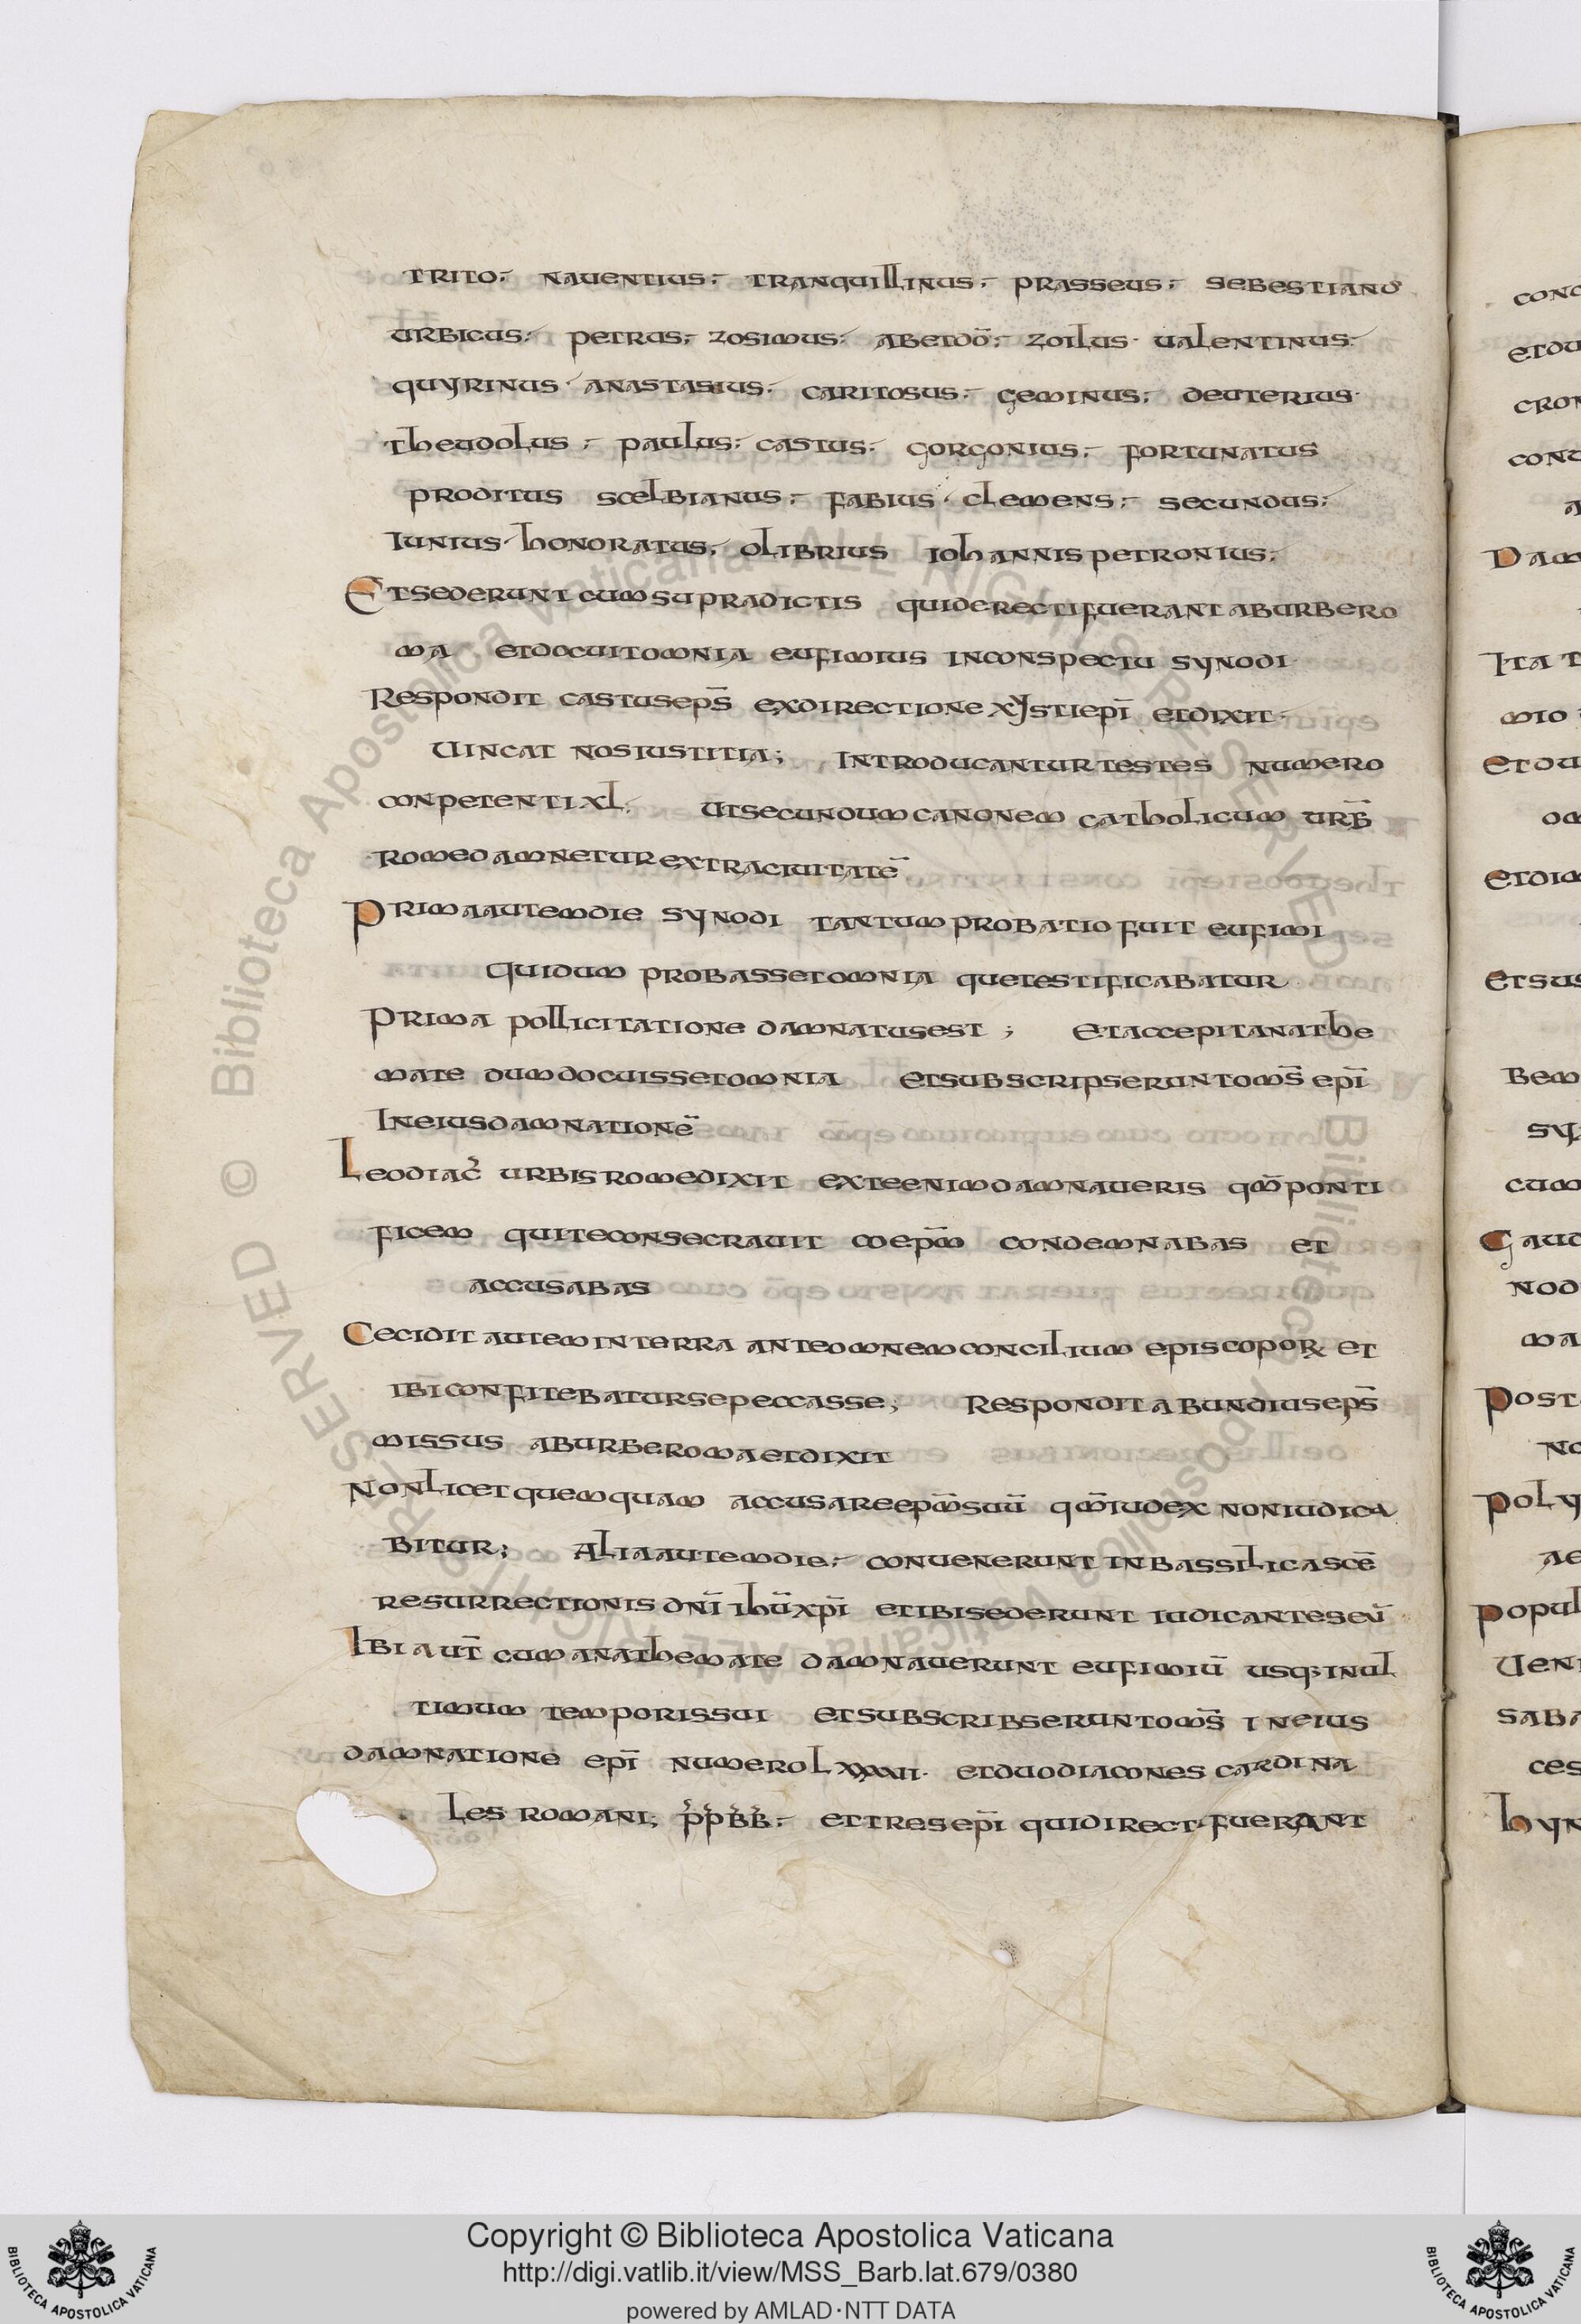 trito; nauentius; tranquillinus; prasseus; sebestianus
urbicus; petrus; zosimus; abetdō; zoilus· ualentinus;
quyrinus· anastasius; caritosus; geminus; deuterius·
theudolus; paulus; castus; gorgonius; fortunatus
proditus scelbianus; fabius· clemens; secundus;
iunius· honoratus; olibrius iohannis petronius;
Etsederunt cumsupradictis quiderectifuerant aburbero
ma etdocuitomnia eufimius inconspectu synodi
Respondit castusep̄s exdirectione xystiep̄i etdixit·
Uincat nosiustitia; Introducanturtestes numero
conpetenti xl. Utsecundumcanonem catholicum urb̄
romedamneturextraciuitatē
Primaautemdie synodi tantumprobatio fuit eufimi
Quidum probassetomnia quetestificabatur
Prima pollicitatione damnatusest; Etaccepitanathe
mate dumdocuissetomnia etsubscripseruntom̄s ep̄i
Ineiusdamnationē
Leodiac̄ urbisromedixit exteenimdamnaueris qm̄ponti
ficem quiteconsecrauit coep̄m condemnabas et
accusabas
Cecidit auteminterra anteomnemconcilium episcopoꝝ et
ibiconfitebatursepeccasse; Respondit abundiusep̄s
missus aburberomaetdixit
Nonlicetquemquam accusareep̄msuū qm̄iudex noniudica
bitur; Aliaautemdie; conuenerunt inbassilicascē
resurrectionis dn̄i ihūxp̄i etibisederunt iudicanteseū
Ibiaut̄ cumanathemate damnauerunt eufimiū usq; inul
timum temporissui etsubscribseruntom̄s ineius
damnatione ep̄i numerolxxxxii· etduodiacones cardina
les romani; p̄p̄b̄b̄; ettresep̄i quidirectifuerant
conc
etdu
cron
cont
Dam
Ita t
mio
etdu
om
etdim
etsus
bem
sy
cum
Gaud
nod
ma
Post
no
Poly
ae
Popul
Ueni
saba
ces
hyn
© Biblioteca Apostolica Vaticana - ALL RIGHTS RESERVED © Biblioteca Apostolica Vaticana - ALL RIGHTS RESERVED
Copyright © Biblioteca Apostolica Vaticana
http://digi.vatlib.it/view/MSS_Barb.lat.679/0380
powered by AMLAD·NTT DATA
BIBLIOTECA APOSTOLICA VATICANA
BIBLIOTECA APOSTOLICA VATICANA